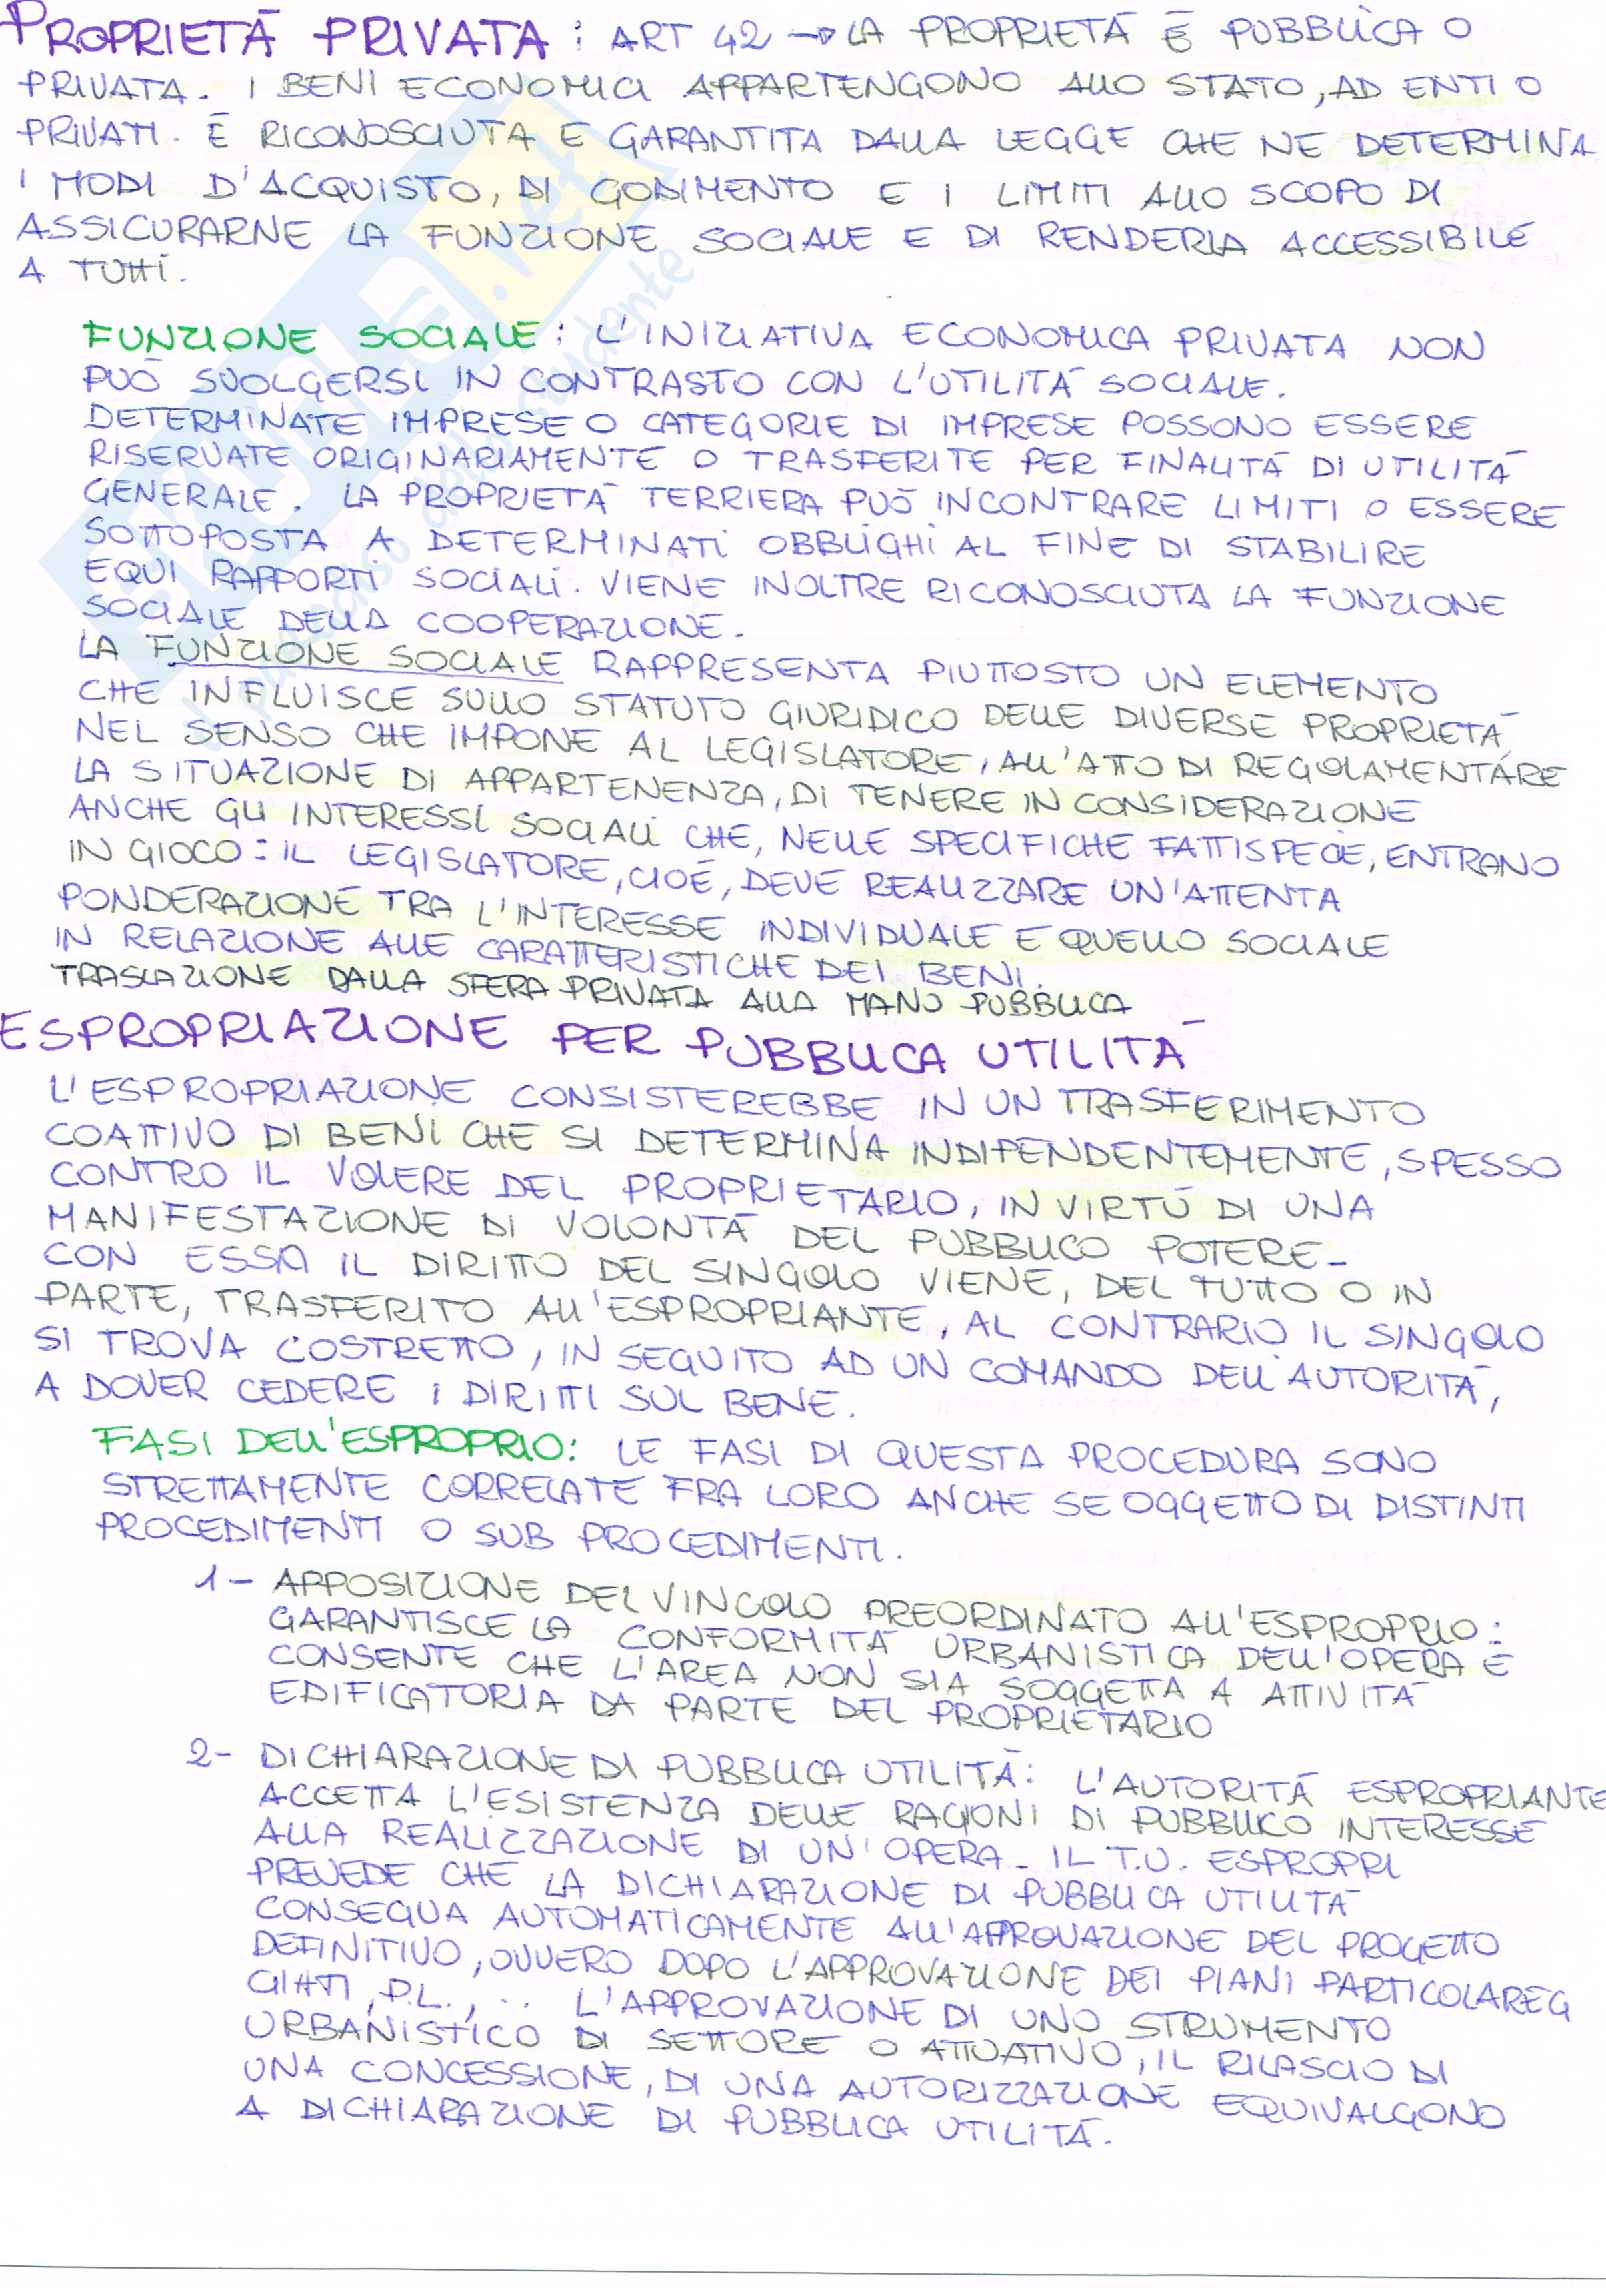 PROPRIETÀ PRIVATA : ART 42 → LA PROPRIETÀ È PUBBLICA O
PRIVATA. I BENI ECONOMICI APPARTENGONO ALLO STATO, AD ENTI O
PRIVATI. È RICONOSCIUTA E GARANTITA DALLA LEGGE CHE NE DETERMINA
I MODI D'ACQUISTO, DI GODIMENTO E I LIMITI ALLO SCOPO DI
ASSICURARNE LA FUNZIONE SOCIALE E DI RENDERLA ACCESSIBILE
A TUTTI.
FUNZIONE SOCIALE: L'INIZIATIVA ECONOMICA PRIVATA NON
PUÒ SVOLGERSI IN CONTRASTO CON L'UTILITÀ SOCIALE.
DETERMINATE IMPRESE O CATEGORIE DI IMPRESE POSSONO ESSERE
RISERVATE ORIGINARIAMENTE O TRASFERITE PER FINALITÀ DI UTILITÀ
GENERALE. LA PROPRIETÀ TERRIERA PUÒ INCONTRARE LIMITI O ESSERE
SOTTOPOSTA A DETERMINATI OBBLIGHI AL FINE DI STABILIRE
EQUI RAPPORTI SOCIALI. VIENE INOLTRE RICONOSCIUTA LA FUNZIONE
SOCIALE DELLA COOPERAZIONE.
LA FUNZIONE SOCIALE RAPPRESENTA PIUTTOSTO UN ELEMENTO
CHE INFLUISCE SULLO STATUTO GIURIDICO DELLE DIVERSE PROPRIETÀ,
NEL SENSO CHE IMPONE AL LEGISLATORE, ALL'ATTO DI REGOLAMENTARE
LA SITUAZIONE DI APPARTENENZA, DI TENERE IN CONSIDERAZIONE
ANCHE GLI INTERESSI SOCIALI CHE, NELLE SPECIFICHE FATTISPECIE, ENTRANO
IN GIOCO: IL LEGISLATORE, CIOÈ, DEVE REALIZZARE UN'ATTENTA
PONDERAZIONE TRA L'INTERESSE INDIVIDUALE E QUELLO SOCIALE
IN RELAZIONE ALLE CARATTERISTICHE DEI BENI.
TRASLAZIONE DALLA SFERA PRIVATA ALLA MANO PUBBLICA
ESPROPRIAZIONE PER PUBBLICA UTILITÀ
L'ESPROPRIAZIONE CONSISTEREBBE IN UN TRASFERIMENTO
COATTIVO DI BENI CHE SI DETERMINA INDIPENDENTEMENTE, SPESSO
CONTRO IL VOLERE DEL PROPRIETARIO, IN VIRTÙ DI UNA
MANIFESTAZIONE DI VOLONTÀ DEL PUBBLICO POTERE.
CON ESSA IL DIRITTO DEL SINGOLO VIENE, DEL TUTTO O IN
PARTE, TRASFERITO ALL'ESPROPRIANTE, AL CONTRARIO IL SINGOLO
SI TROVA COSTRETTO, IN SEGUITO AD UN COMANDO DELL'AUTORITÀ,
A DOVER CEDERE I DIRITTI SUL BENE.
FASI DELL'ESPROPRIO: LE FASI DI QUESTA PROCEDURA SONO
STRETTAMENTE CORRELATE FRA LORO ANCHE SE OGGETTO DI DISTINTI
PROCEDIMENTI O SUB PROCEDIMENTI.
1 - APPOSIZIONE DEL VINCOLO PREORDINATO ALL'ESPROPRIO:
GARANTISCE LA CONFORMITÀ URBANISTICA DELL'OPERA E
CONSENTE CHE L'AREA NON SIA SOGGETTA A ATTIVITÀ
EDIFICATORIA DA PARTE DEL PROPRIETARIO
2 - DICHIARAZIONE DI PUBBLICA UTILITÀ: L'AUTORITÀ ESPROPRIANTE
ACCETTA L'ESISTENZA DELLE RAGIONI DI PUBBLICO INTERESSE
ALLA REALIZZAZIONE DI UN'OPERA. IL T.U. ESPROPRI
PREVEDE CHE LA DICHIARAZIONE DI PUBBLICA UTILITÀ
CONSEGUA AUTOMATICAMENTE ALL'APPROVAZIONE DEL PROGETTO
DEFINITIVO, OVVERO DOPO L'APPROVAZIONE DEI PIANI PARTICOLAREG
GIATI, P.L., .. L'APPROVAZIONE DI UNO STRUMENTO
URBANISTICO DI SETTORE O ATTUATIVO, IL RILASCIO DI
UNA CONCESSIONE, DI UNA AUTORIZZAZIONE EQUIVALGONO
A DICHIARAZIONE DI PUBBLICA UTILITÀ.